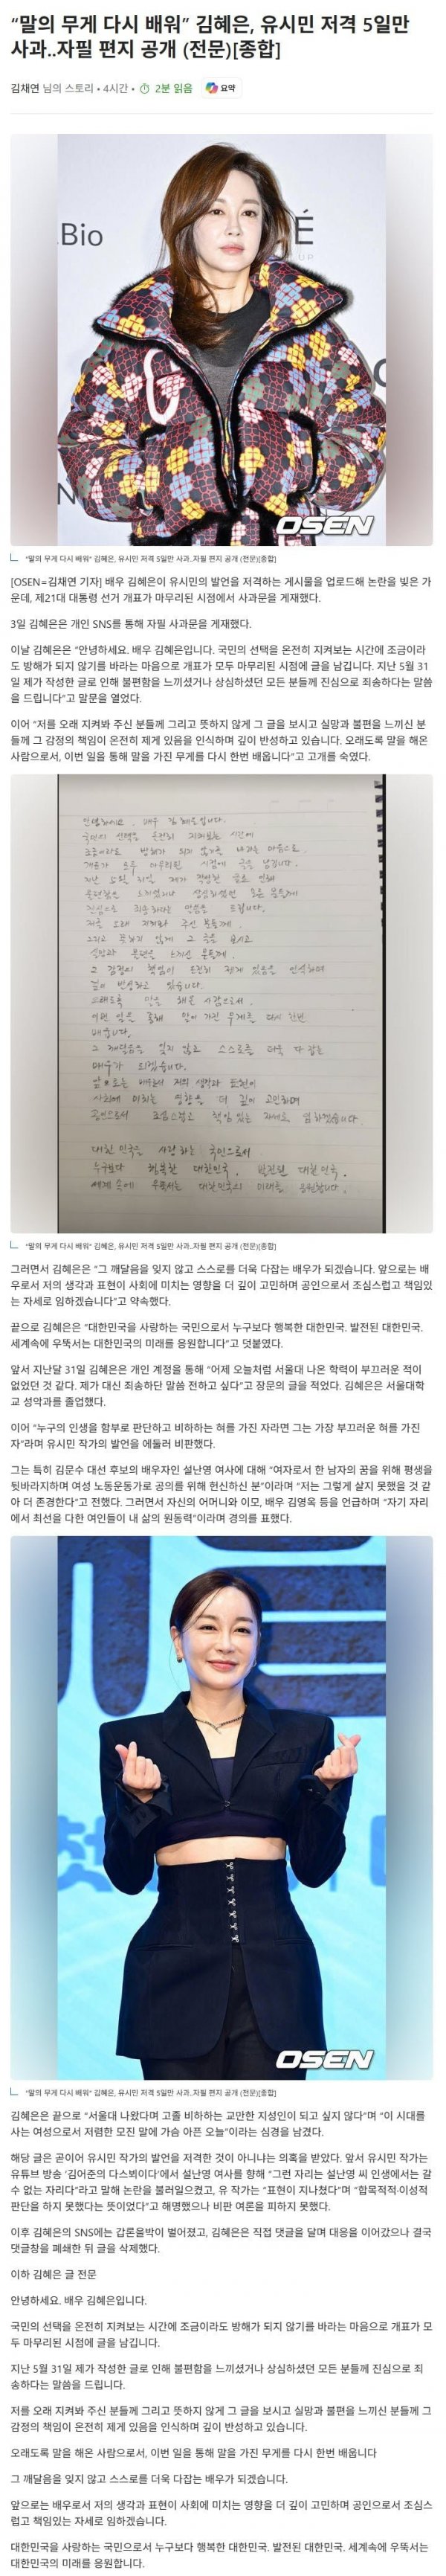 “말의 무게 다시 배워” 김혜은, 유시민 저격 5일만
사과..자필 편지 공개 (전문)[종합]
김채연 님의 스토리 • 4시간 • 2분 읽음 요약
.Bio
É
UP
N
OSEN
“말의 무게 다시 배워” 김혜은, 유시민 저격 5일만 사과..자필 편지 공개 (전문)[종합]
[OSEN=김채연 기자] 배우 김혜은이 유시민의 발언을 저격하는 게시물을 업로드해 논란을 빚은 가
운데, 제21대 대통령 선거 개표가 마무리된 시점에서 사과문을 게재했다.
3일 김혜은은 개인 SNS를 통해 자필 사과문을 게재했다.
이날 김혜은은 “안녕하세요. 배우 김혜은입니다. 국민의 선택을 온전히 지켜보는 시간에 조금이라
도 방해가 되지 않기를 바라는 마음으로 개표가 모두 마무리된 시점에 글을 남깁니다. 지난 5월 31
일 제가 작성한 글로 인해 불편함을 느끼셨거나 상심하셨던 모든 분들께 진심으로 죄송하다는 말씀
을 드립니다”고 말문을 열었다.
이어 “저를 오래 지켜봐 주신 분들께 그리고 뜻하지 않게 그 글을 보시고 실망과 불편을 느끼신 분
들께 그 감정의 책임이 온전히 제게 있음을 인식하며 깊이 반성하고 있습니다. 오래도록 말을 해온
사람으로서, 이번 일을 통해 말을 가진 무게를 다시 한번 배웁니다”고 고개를 숙였다.
안녕하세요. 배우 김혜은입니다.
국민의 선택을 온전히 지켜보는 시간에
조금이라도 방해가 되지 않기를 바라는 마음으로
개표가 모두 마무리된 시점에 글을 남깁니다.
지난 5월 31일 제가 작성한 글로 인해
불편함을 느끼셨거나 상심하셨던 모든 분들께
진심으로 죄송하다는 말씀을 드립니다.
저를 오래 지켜봐 주신 분들께,
그리고 뜻하지 않게 그 글을 보시고
실망과 불편을 느끼신 분들께,
그 감정의 책임이 온전히 제게 있음을 인식하며
깊이 반성하고 있습니다.
오래도록 말을 해온 사람으로서,
이번 일을 통해 말이 가진 무게를 다시 한번
배웁니다.
그 깨달음을 잊지 않고 스스로를 더욱 다잡는
배우가 되겠습니다.
앞으로는 배우로서 저의 생각과 표현이
사회에 미치는 영향을 더 깊이 고민하며
공인으로서 조심스럽고 책임 있는 자세로 임하겠습니다.
대한민국을 사랑하는 국민으로서
누구보다 행복한 대한민국, 발전된 대한민국.
세계 속에 우뚝서는 대한민국의 미래를 응원합니다.
“말의 무게 다시 배워” 김혜은, 유시민 저격 5일만 사과..자필 편지 공개 (전문)[종합]
그러면서 김혜은은 “그 깨달음을 잊지 않고 스스로를 더욱 다잡는 배우가 되겠습니다. 앞으로는 배
우로서 저의 생각과 표현이 사회에 미치는 영향을 더 깊이 고민하며 공인으로서 조심스럽고 책임있
는 자세로 임하겠습니다”고 약속했다.
끝으로 김혜은은 “대한민국을 사랑하는 국민으로서 누구보다 행복한 대한민국. 발전된 대한민국.
세계속에 우뚝서는 대한민국의 미래를 응원합니다”고 덧붙였다.
앞서 지난달 31일 김혜은은 개인 계정을 통해 “어제 오늘처럼 서울대 나온 학력이 부끄러운 적이
없었던 것 같다. 제가 대신 죄송하단 말씀 전하고 싶다”고 장문의 글을 적었다. 김혜은은 서울대학
교 성악과를 졸업했다.
이어 “누구의 인생을 함부로 판단하고 비하하는 혀를 가진 자라면 그는 가장 부끄러운 혀를 가진
자”라며 유시민 작가의 발언을 에둘러 비판했다.
그는 특히 김문수 대선 후보의 배우자인 설난영 여사에 대해 “여자로서 한 남자의 꿈을 위해 평생을
뒷바라지하며 여성 노동운동가로 공의를 위해 헌신하신 분”이라며 “저는 그렇게 살지 못했을 것 같
아 더 존경한다”고 전했다. 그러면서 자신의 어머니와 이모, 배우 김영옥 등을 언급하며 “자기 자리
에서 최선을 다한 여인들이 내 삶의 원동력”이라며 경의를 표했다.
OSEN
“말의 무게 다시 배워” 김혜은, 유시민 저격 5일만 사과..자필 편지 공개 (전문)[종합]
김혜은은 끝으로 “서울대 나왔다며 고졸 비하하는 교만한 지성인이 되고 싶지 않다”며 “이 시대를
사는 여성으로서 저렴한 모진 말에 가슴 아픈 오늘”이라는 심경을 남겼다.
해당 글은 곧이어 유시민 작가의 발언을 저격한 것이 아니냐는 의혹을 받았다. 앞서 유시민 작가는
유튜브 방송 ‘김어준의 다스뵈이다’에서 설난영 여사를 향해 “그런 자리는 설난영 씨 인생에서는 갈
수 없는 자리다”라고 말해 논란을 불러일으켰고, 유 작가는 “표현이 지나쳤다”며 “합목적적·이성적
판단을 하지 못했다는 뜻이었다”고 해명했으나 비판 여론을 피하지 못했다.
이후 김혜은의 SNS에는 갑론을박이 벌어졌고, 김혜은은 직접 댓글을 달며 대응을 이어갔으나 결국
댓글창을 폐쇄한 뒤 글을 삭제했다.
이하 김혜은 글 전문
안녕하세요. 배우 김혜은입니다.
국민의 선택을 온전히 지켜보는 시간에 조금이라도 방해가 되지 않기를 바라는 마음으로 개표가 모
두 마무리된 시점에 글을 남깁니다.
지난 5월 31일 제가 작성한 글로 인해 불편함을 느끼셨거나 상심하셨던 모든 분들께 진심으로 죄
송하다는 말씀을 드립니다.
저를 오래 지켜봐 주신 분들께 그리고 뜻하지 않게 그 글을 보시고 실망과 불편을 느끼신 분들께 그
감정의 책임이 온전히 제게 있음을 인식하며 깊이 반성하고 있습니다.
오래도록 말을 해온 사람으로서, 이번 일을 통해 말을 가진 무게를 다시 한번 배웁니다
그 깨달음을 잊지 않고 스스로를 더욱 다잡는 배우가 되겠습니다.
앞으로는 배우로서 저의 생각과 표현이 사회에 미치는 영향을 더 깊이 고민하며 공인으로서 조심스
럽고 책임있는 자세로 임하겠습니다.
대한민국을 사랑하는 국민으로서 누구보다 행복한 대한민국. 발전된 대한민국. 세계속에 우뚝서는
대한민국의 미래를 응원합니다.